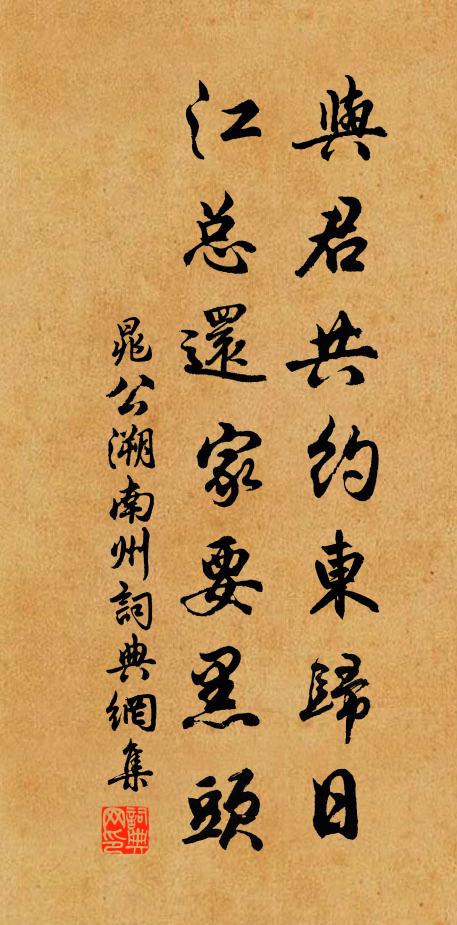 與君共約東歸日
江总還家要黑頭
晁公溯南州詞典網集
詞典网印